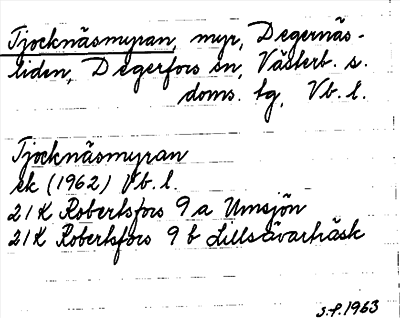 Tjocknäsmyran, myr, Degernäs-
liden, Degerfors sn, Västerb. s.
doms. tg, Vb. l.
Tjocknäsmyran
ek (1962) Vb. l.
21 K Robertsfors 9 a Umsjön
21 K Robertsfors 9 b Lillsävarträsk
S.P. 1963